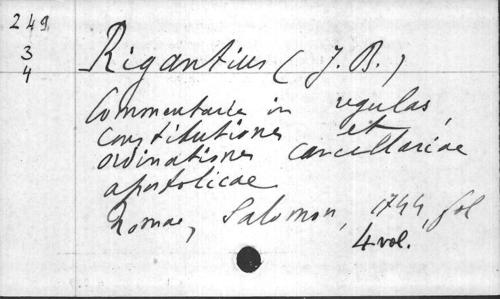 249
3
4
Rigantius (J. B.)
Commentaria in regulas,
constitutiones et
ordinationes cancellariae
apostolicae
Romae, Salomon, 1744, fol
4 vol.